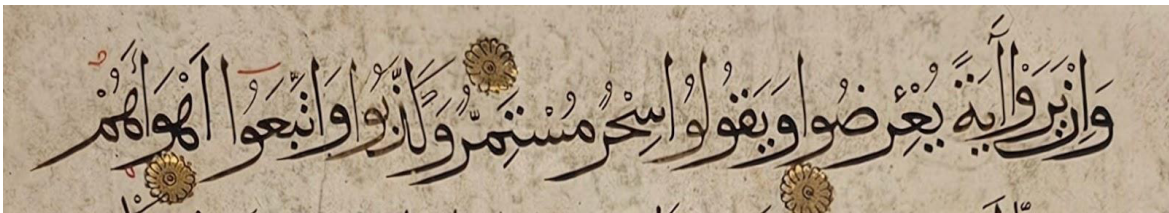 وَاِنْ يَرَوْا آيَةً يُعْرِضُوا وَيَقُولُوا سِحْرٌ مُسْتَمِرٌّ وَكَذَّبُوا وَاتَّبَعُوا اَهْوَاءَهُمْ